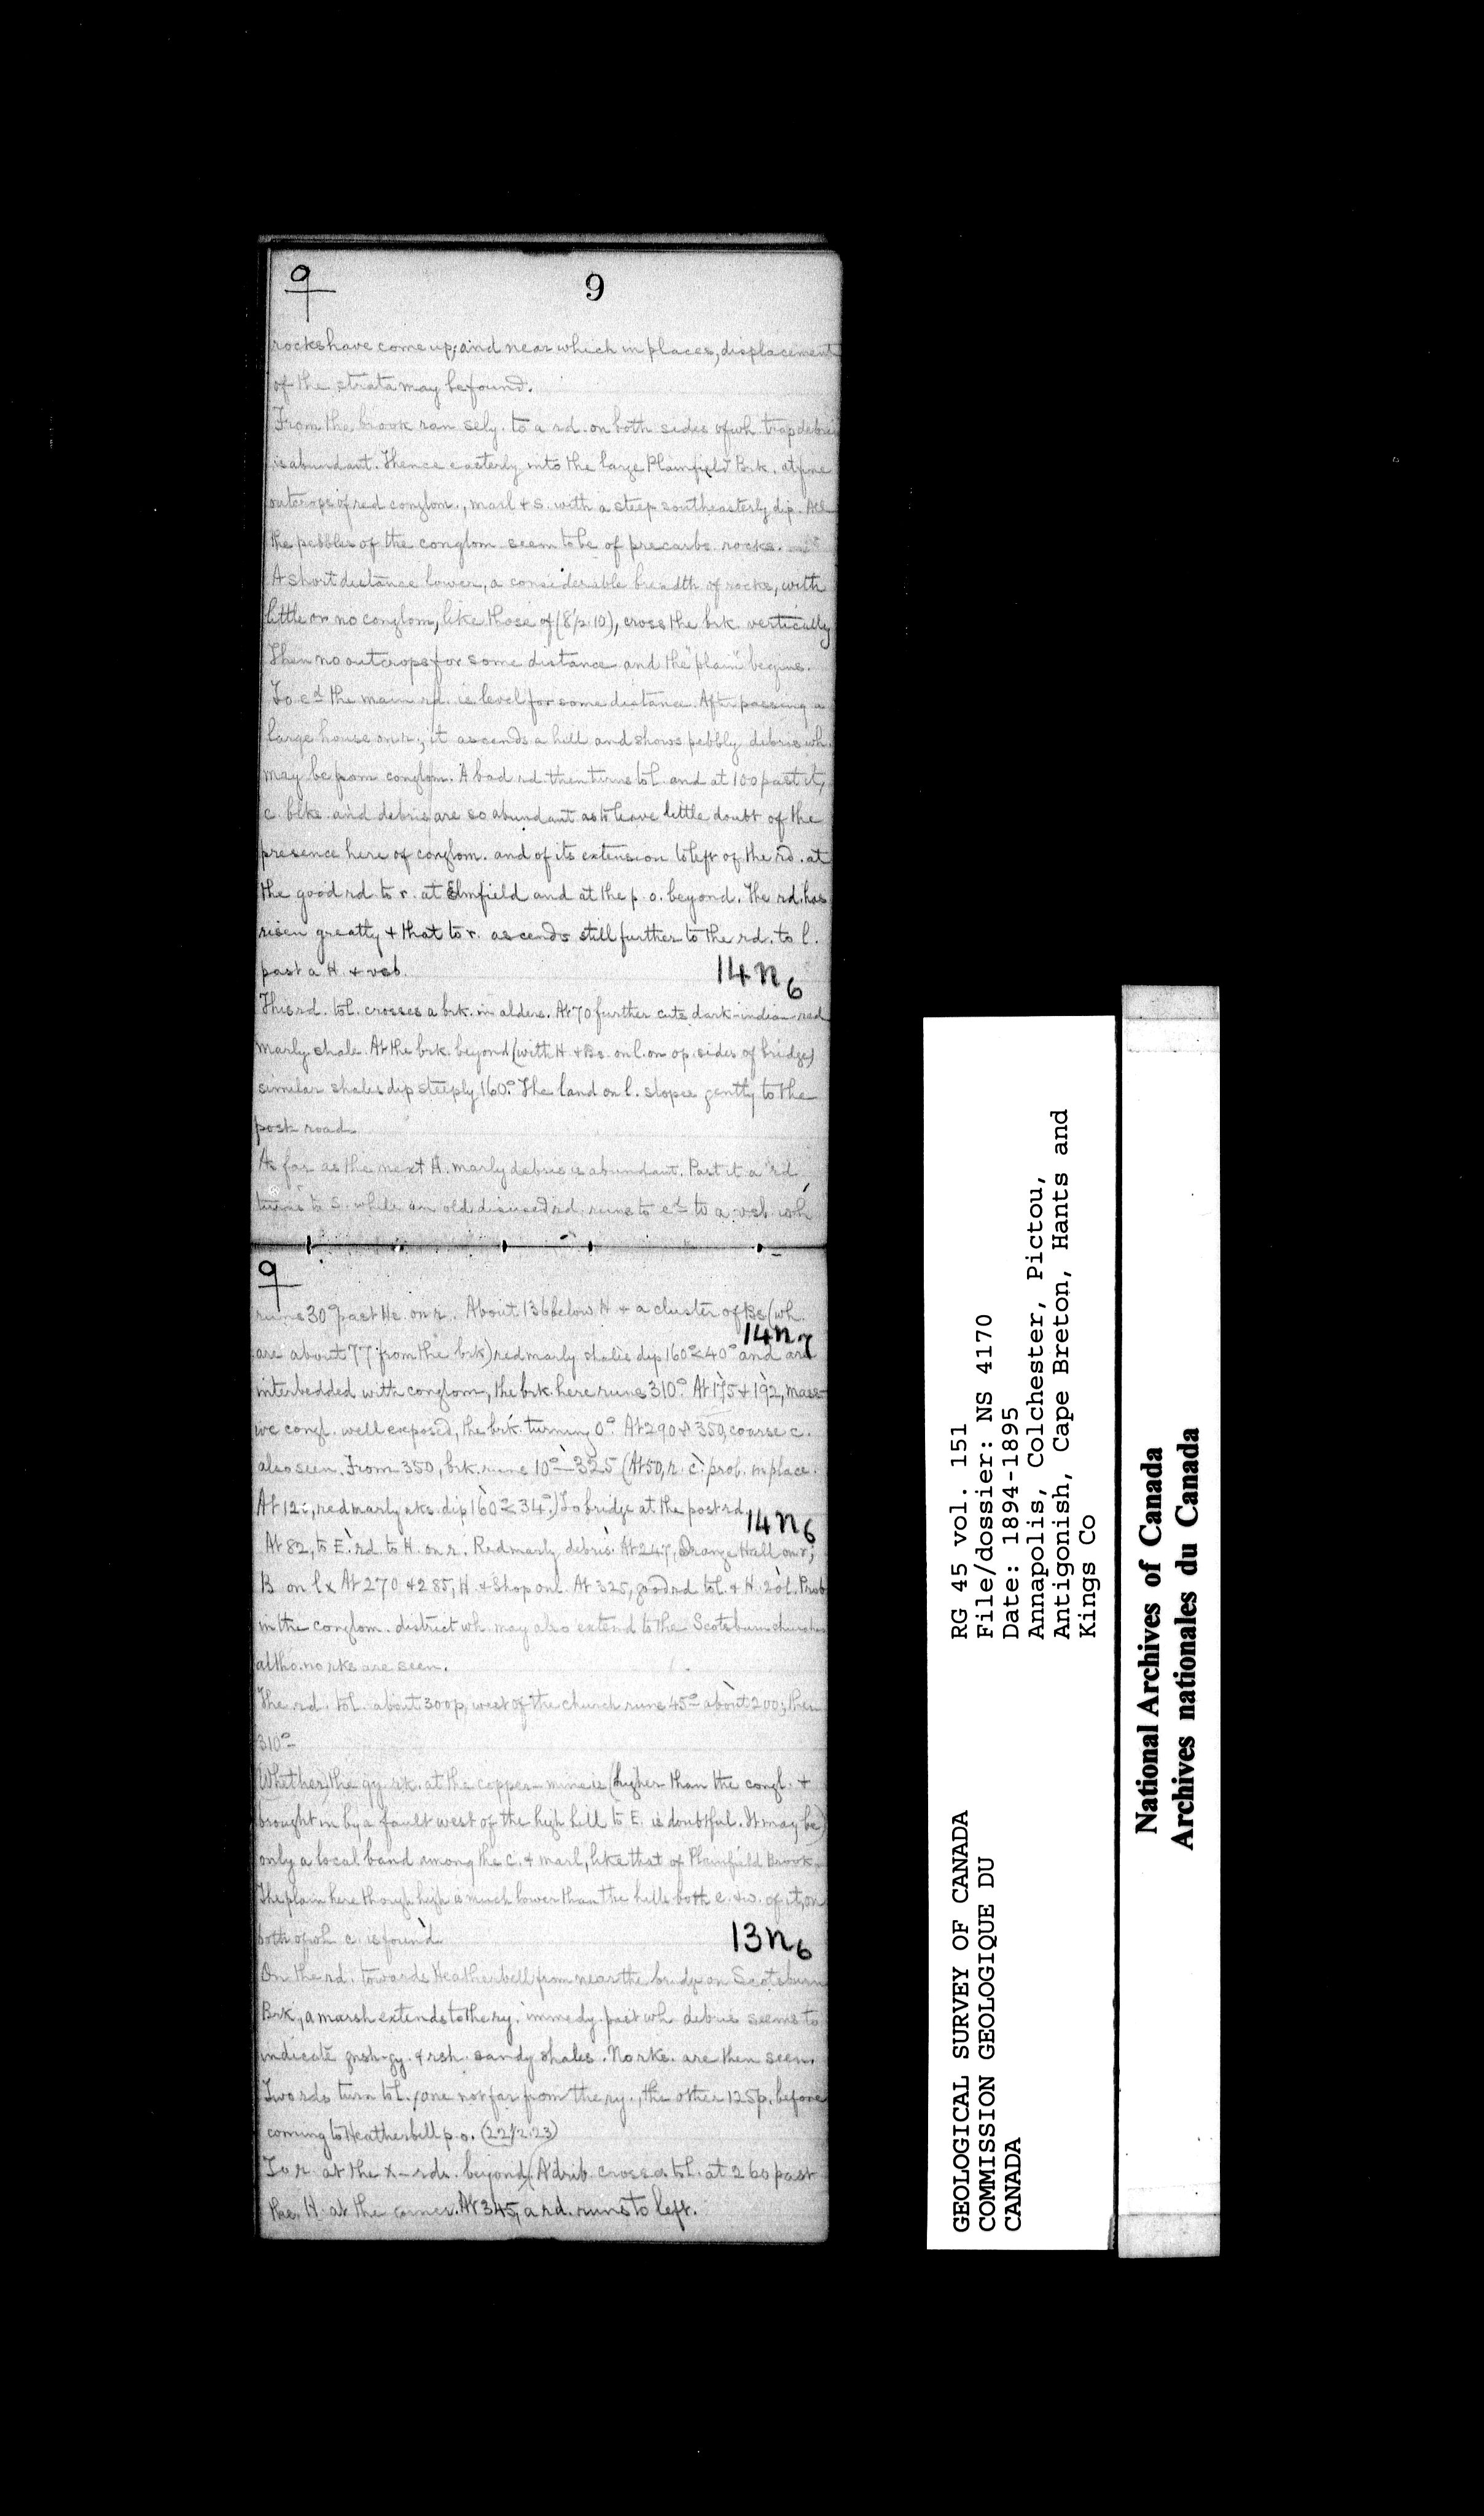 9
9
rocks have come up; and near which in places, displacement
of the strata may be found.
From the brook ran sely. to a rd. on both sides of wh. trap debris
is abundant. Thence easterly into the large Plainfield Brk. at fine
outcrops of red conglom., marl & s. with a steep southeasterly dip. All
the pebbles of the conglom seem to be of precarb. rocks.
A short distance lower, a considerable breadth of rocks, with
little or no conglom, like those of (8/2.10), cross the brk. vertically
Then no outcrops for some distance and the "plain" begins.
To ed the main rd. is level for some distance. After passing a
large house on r., it ascends a hill and shows pebbly debris wh.
may be from conglom. A bad rd. then turns to l. and at 100 past it,
c. blks. and debris are so abundant as to leave little doubt of the
presence here of conglom. and of its extension to left of the rd. at
the good rd. to r. at Elmfield and at the p. o. beyond. The rd. has
risen greatly & that to r. ascends still further to the rd. to l.
past a H. & vsb.
14n6
This rd. to l. crosses a brk. in alders. At 70 further cuts dark-indian-red
marly shale. At the brk. beyond (with H. & Bs. on l. on op. sides of bridge)
similar shales dip steeply 160.° The land on l. slopes gently to the
post road.
As far as the next H. marly debris is abundant. Past it a rd.
turns to S. while an old disused rd. runs to ed to a vsb. wh
9
runs 30° past Hs. on r. About 136 below H. & a cluster of Bs. (wh.
14n7
are about 77 from the brk) red marly shales dip 160°<40° and are
interbedded with conglom, the brk. here runs 310.° At 175 & 192, mass-
ive congl. well exposed, the brk. turning 0.° At 290 & 350, coarse c.
also seen. From 350, brk. runs 10°–325 (At 50, r. c. prob. in place.
At 12, red marly rks. dip 160°<34°.) To bridge at the post rd.
14n6
At 82, to E. rd. to H. on r. Red marly debris. At 247, Orange Hall on r;
B on l x At 270 & 285, H. & Shop on l. At 325, good rd. to l. & H. 20 l. Prob
in the conglom. district wh. may also extend to the Scotsburn churches
altho. no rks are seen.
The rd. to l. about 300p, west of the church runs 45° about 200; then
310°
(Whether) the gy. rk. at the copper-mine is (higher than the congl. &
brought in by a fault west of the high hill to E. is doubtful. It may be)
only a local band among the c. & marl, like that of Plainfield Brook.
The plain here though high is much lower than the hills both e. & w. of it, on
both of wh c. is found.
13n6
On the rd. towards Heatherbell from near the bridge on Scotsburn
Brk, a marsh extends to the ry. immedy. past wh debris seems to
indicate gnsh-gy. & rsh. sandy shales. No rks. are then seen.
Two rds turn to l., one not far from the ry., the other 125p. before
coming to Heatherbell p. o. (22/2.23)
To r. at the x-rds. beyond (A drib. crosses to l. at 260 past
the H. at the corner. At 345, a rd. runs to left.
RG 45 vol. 151
File/dossier: NS 4170
Date: 1894-1895
Annapolis, Colchester, Pictou,
Antigonish, Cape Breton, Hants and
Kings Co
GEOLOGICAL SURVEY OF CANADA
COMMISSION GEOLOGIQUE DU
CANADA
National Archives of Canada
Archives nationales du Canada